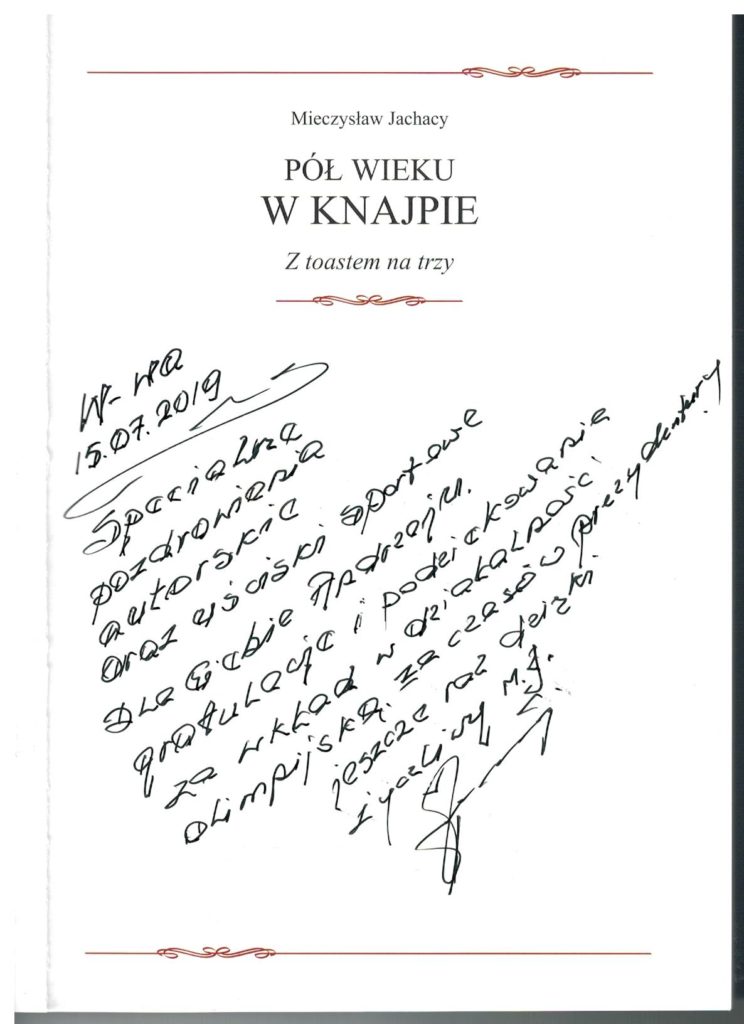 Mieczysław Jachacy
PÓŁ WIEKU
W KNAJPIE
Z toastem na trzy
W-wa
15.07.2019
Specjalne
pozdrowienia
autorskie
oraz uściski sportowe
Dla Ciebie Andrzeju.
gratulacje i podziękowania
za wkład w działalność
olimpijską za czasów prezydentury
jeszcze raz dzięki.
życzliwy M.J.